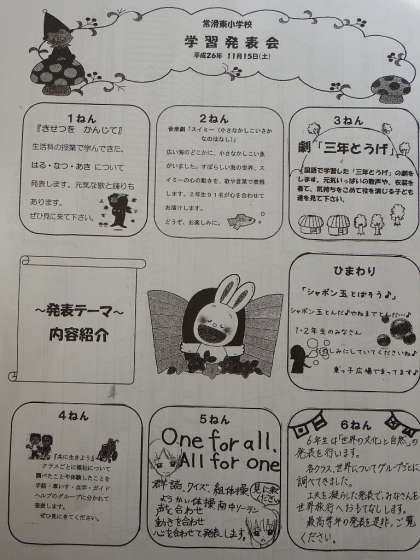 常滑東小学校
学習発表会
平成26年 11月15日(土)
1ねん
『きせつを かんじて』
生活科の授業で学んできた、
はる・なつ・あき について
発表します。元気な歌と踊りも
あります。
ぜひ見に来て下さい。
2ねん
音楽劇「スイミー（小さなかしこいさかなのはなし）」
広い海のどこかに、小さなかしこい魚
がいました。すばらしい海の世界、ス
イミーの心の動きを、歌や音楽で表現
します。2年生91名が心を合わせて
お届けします。
どうぞ、お楽しみに。
3ねん
劇「三年とうげ」
国語で学習した「三年とうげ」の劇を
します。元気いっぱいの歌声や、衣装を
着て、気持ちをこめて役を演じる子ども
達を見て下さい。
～発表テーマ～
内容紹介
ひまわり
「シャボン玉とばそう♪」
シャボン玉とんだ♪やねまでとんだ…♪
1・2年生のみなさん
楽しみにしていてくださいね♪
東っ子広場でまってます♪
4ねん
『共に生きよう』
クラスごとに福祉について
調べたことや体験したことを
手話・車いす・点字・ガイド
ヘルプのグループに分かれて
発表します。
ぜひ見にきてください。
5ねん
One for all,
All for one
群読、クイズ、組体操
見に来てください
ようかい体操 南中ソーラン
声を合わせ
動きを合わせ
心を合わせて発表します。
6ねん
6年生は「世界の文化と自然」の
発表を行います。
各クラス、世界についてグループごとに
調べてきました。
工夫を凝らした発表で、みなさんを
世界旅行へおもてなしします。
最高学年の発表を是非、ご覧
ください。